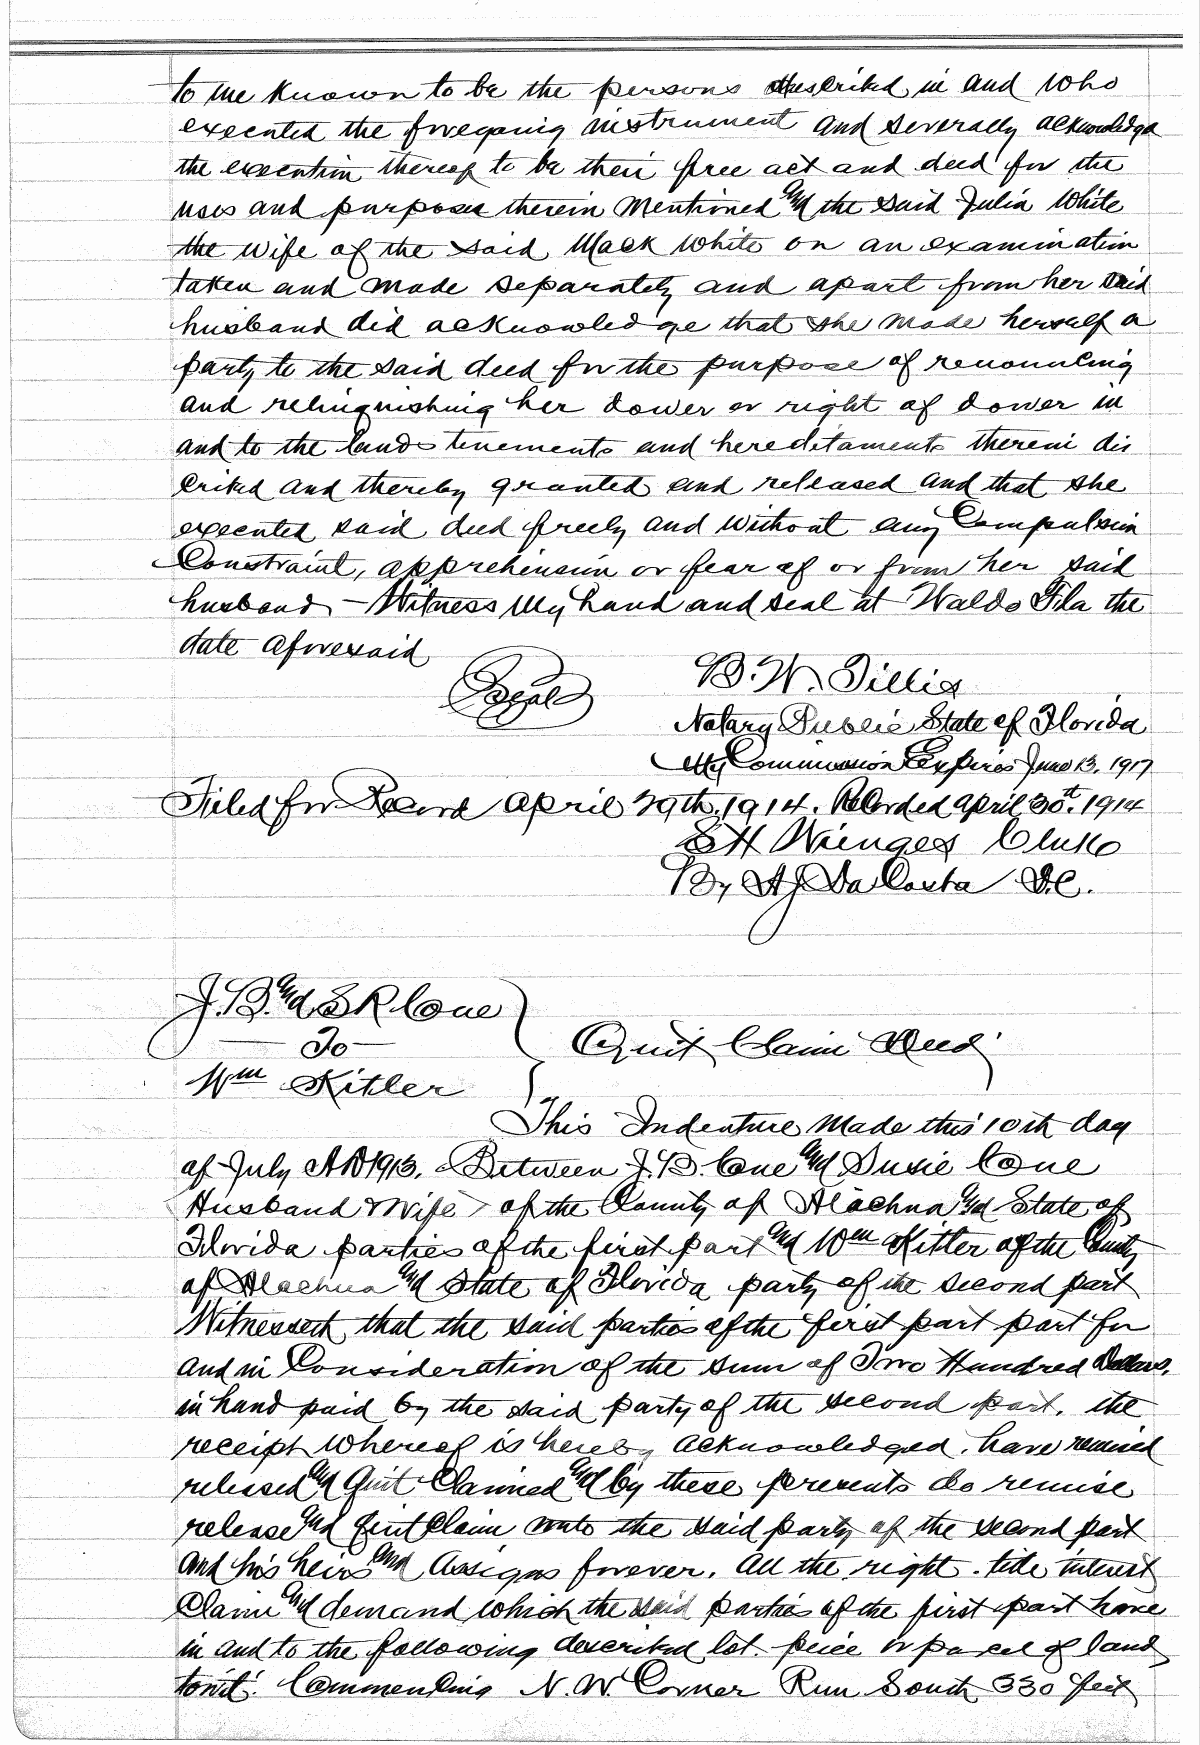 to me known to be the persons described in and who
executed the foregoing instrument and severally acknowledge
the execution thereof to be their free act and deed for the
uses and purposes therein mentioned and the said Julia White
the wife of the said Mack White on an examination
taken and made separately and apart from her said
husband did acknowledge that she made herself a
party to the said deed for the purpose of renouncing
and relinquishing her dower or right of dower in
and to the lands tenements and hereditaments therein dis
cribed and thereby granted and released and that she
executed said deed freely and without any Compulsion
Constraint, apprehension or fear of or from her said
husband - Witness My hand and seal at Waldo Fla the
date aforesaid
B. W. Tillis
Notary Public State of Florida
My Commission Expires June 13, 1917
Filed for Record April 29th, 1914. Recorded April 30th, 1914
S H Wienges Clerk
By A J DaCosta D.C.
J. B. and S R Cone
To
Wm Kitler
Quit Claim Deed
This Indenture Made this 10th day
of July A D 1913. Between J. B. Cone and Susie Cone
Husband & Wife of the County of Alachua and State of
Florida parties of the first part and Wm Kitler of the County
of Alachua and State of Florida party of the second part
Witnesseth that the said parties of the first part part for
and in Consideration of the sum of Two Hundred Dollars,
in hand paid by the said party of the second part, the
receipt whereof is hereby acknowledged, have remised
released and Quit Claimed and by these presents do remise
release and Quit Claim unto the said party of the second part
and his heirs and Assigns forever, all the right. title interest
Claim and demand which the said parties of the first part have
in and to the following described lot. peice or parcel of land
towit. Commencing N. W. Corner Run South 330 feet